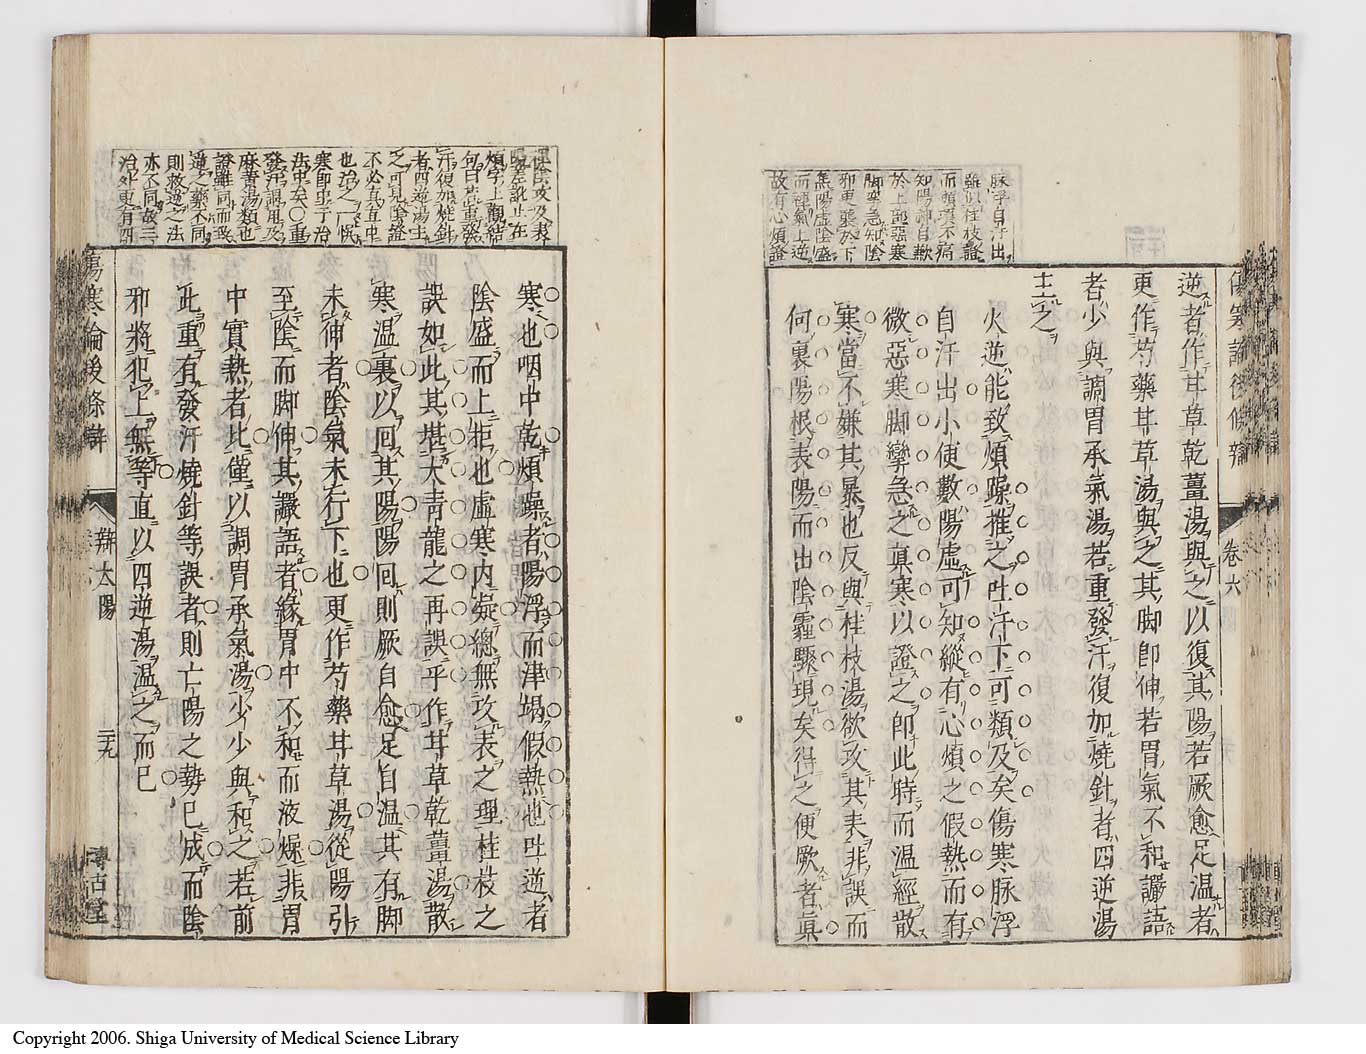 傷寒論後條辯 卷六
脉浮自汗出
雖似桂枝證
而頭項不痛
知陽神自歉
於上部惡寒
脚攣急知陰
邪更襲於下
焦陽虛陰盛
而裡氣上逆
故有心煩證
逆者作甘草乾薑湯與之以復其陽若厥愈足溫者
更作芍藥甘草湯與之其脚即伸若胃氣不和讝語
者少與調胃承氣湯若重發汗復加燒針者四逆湯
主之
火逆能致煩躁推之吐汗下可類及矣傷寒脉浮
自汗出小便數陽虛可知縱有心煩之假熱而有
微惡寒脚攣急之真寒以證之即此時而溫經散
寒當不嫌其暴也反與桂枝湯欲攻其表非誤而
何裏陽根表陽而出陰霾驟現矣得之便厥者真
煩字上觀結
句曰若重發
汗復加燒針
者四逆湯主
之可見陰證
不必真直中
也治之一悞
寒即中于治
法中矣〇重
發汗謂用及
麻黄湯類也
證雖同而致
逆之藥不同
則救逆之法
亦不同故三
治外更有四
寒也咽中乾煩躁者陽浮而津竭假熱也吐逆者
陰盛而上拒也虛寒内凝總無攻表之理桂枝之
誤如此其堪大青龍之再誤乎作甘草乾薑湯散
寒溫裏以回其陽陽回則厥自愈足自溫其有脚
未伸者陰氣未行下也更作芍藥甘草湯從陽引
至陰而脚伸其讝語者緣胃中不和而液燥非胃
中實熱者比僅以調胃承氣湯少少與和之若前
此重有發汗燒針等誤者則亡陽之勢已成而陰
邪將犯上無等直以四逆湯溫之而已
傷寒論後條辯 辯太陽 二十九 博古堂
Copyright 2006. Shiga University of Medical Science Library